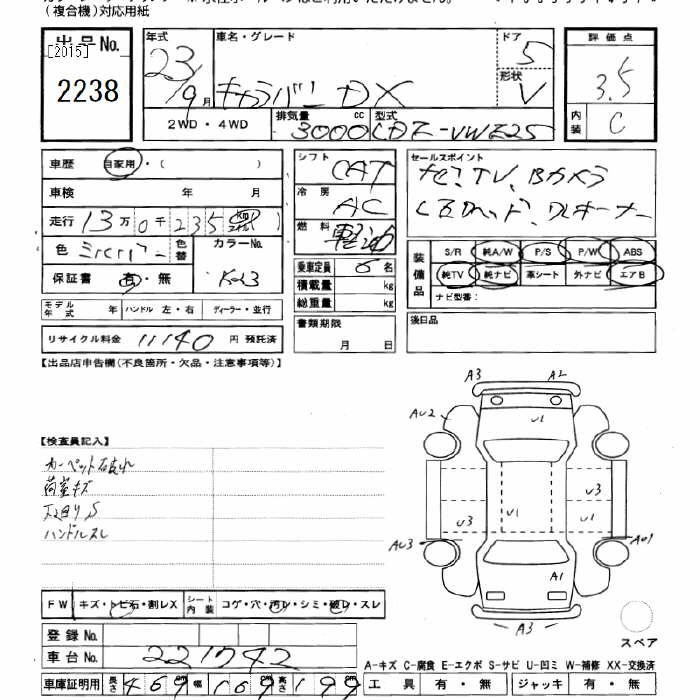 (複合機)対応用紙
出品No.
[2015]
2238
年式 23/9月
車名・グレード キャラバン DX
ドア 5
形状 V
評価点 3.5
内装 C
2WD・4WD
排気量 3000cc
型式 LDF-VWE25
車歴 自家用・( )
車検 年 月
走行 13万0千235 km
色 シルバー 色替 カラーNo. K23
保証書 有・無
モデル年式 年 ハンドル 左・右 ディーラー・並行
リサイクル料金 11140 円 預託済
シフト CAT
冷房 AC
燃料 軽油
乗車定員 6名
積載量 kg
総重量 kg
書類期限
月 日
セールスポイント
ナビ、TV、Bカメラ
装備品 S/R 純A/W P/S P/W ABS
純TV 純ナビ 革シート 外ナビ エアB
ナビ型番:
後日品
【出品店申告欄(不良箇所・欠品・注意事項等)】
【検査員記入】
カーペット破れ
荷室キズ
下廻りS
ハンドルスレ
A3 A2
AU2 U1
U3 U1 U3
AU3 AU1
A1
A3
スペア
FW キズ・トビ石・割レX シート内装 コゲ・穴・汚レ・シミ・破レ・スレ
登録No.
車台No. 221742
車庫証明用 長さ 469 幅 169 高さ 199
A-キズ C-腐食 E-エクボ S-サビ U-凹ミ W-補修 XX-交換済
工具 有・無 ジャッキ 有・無